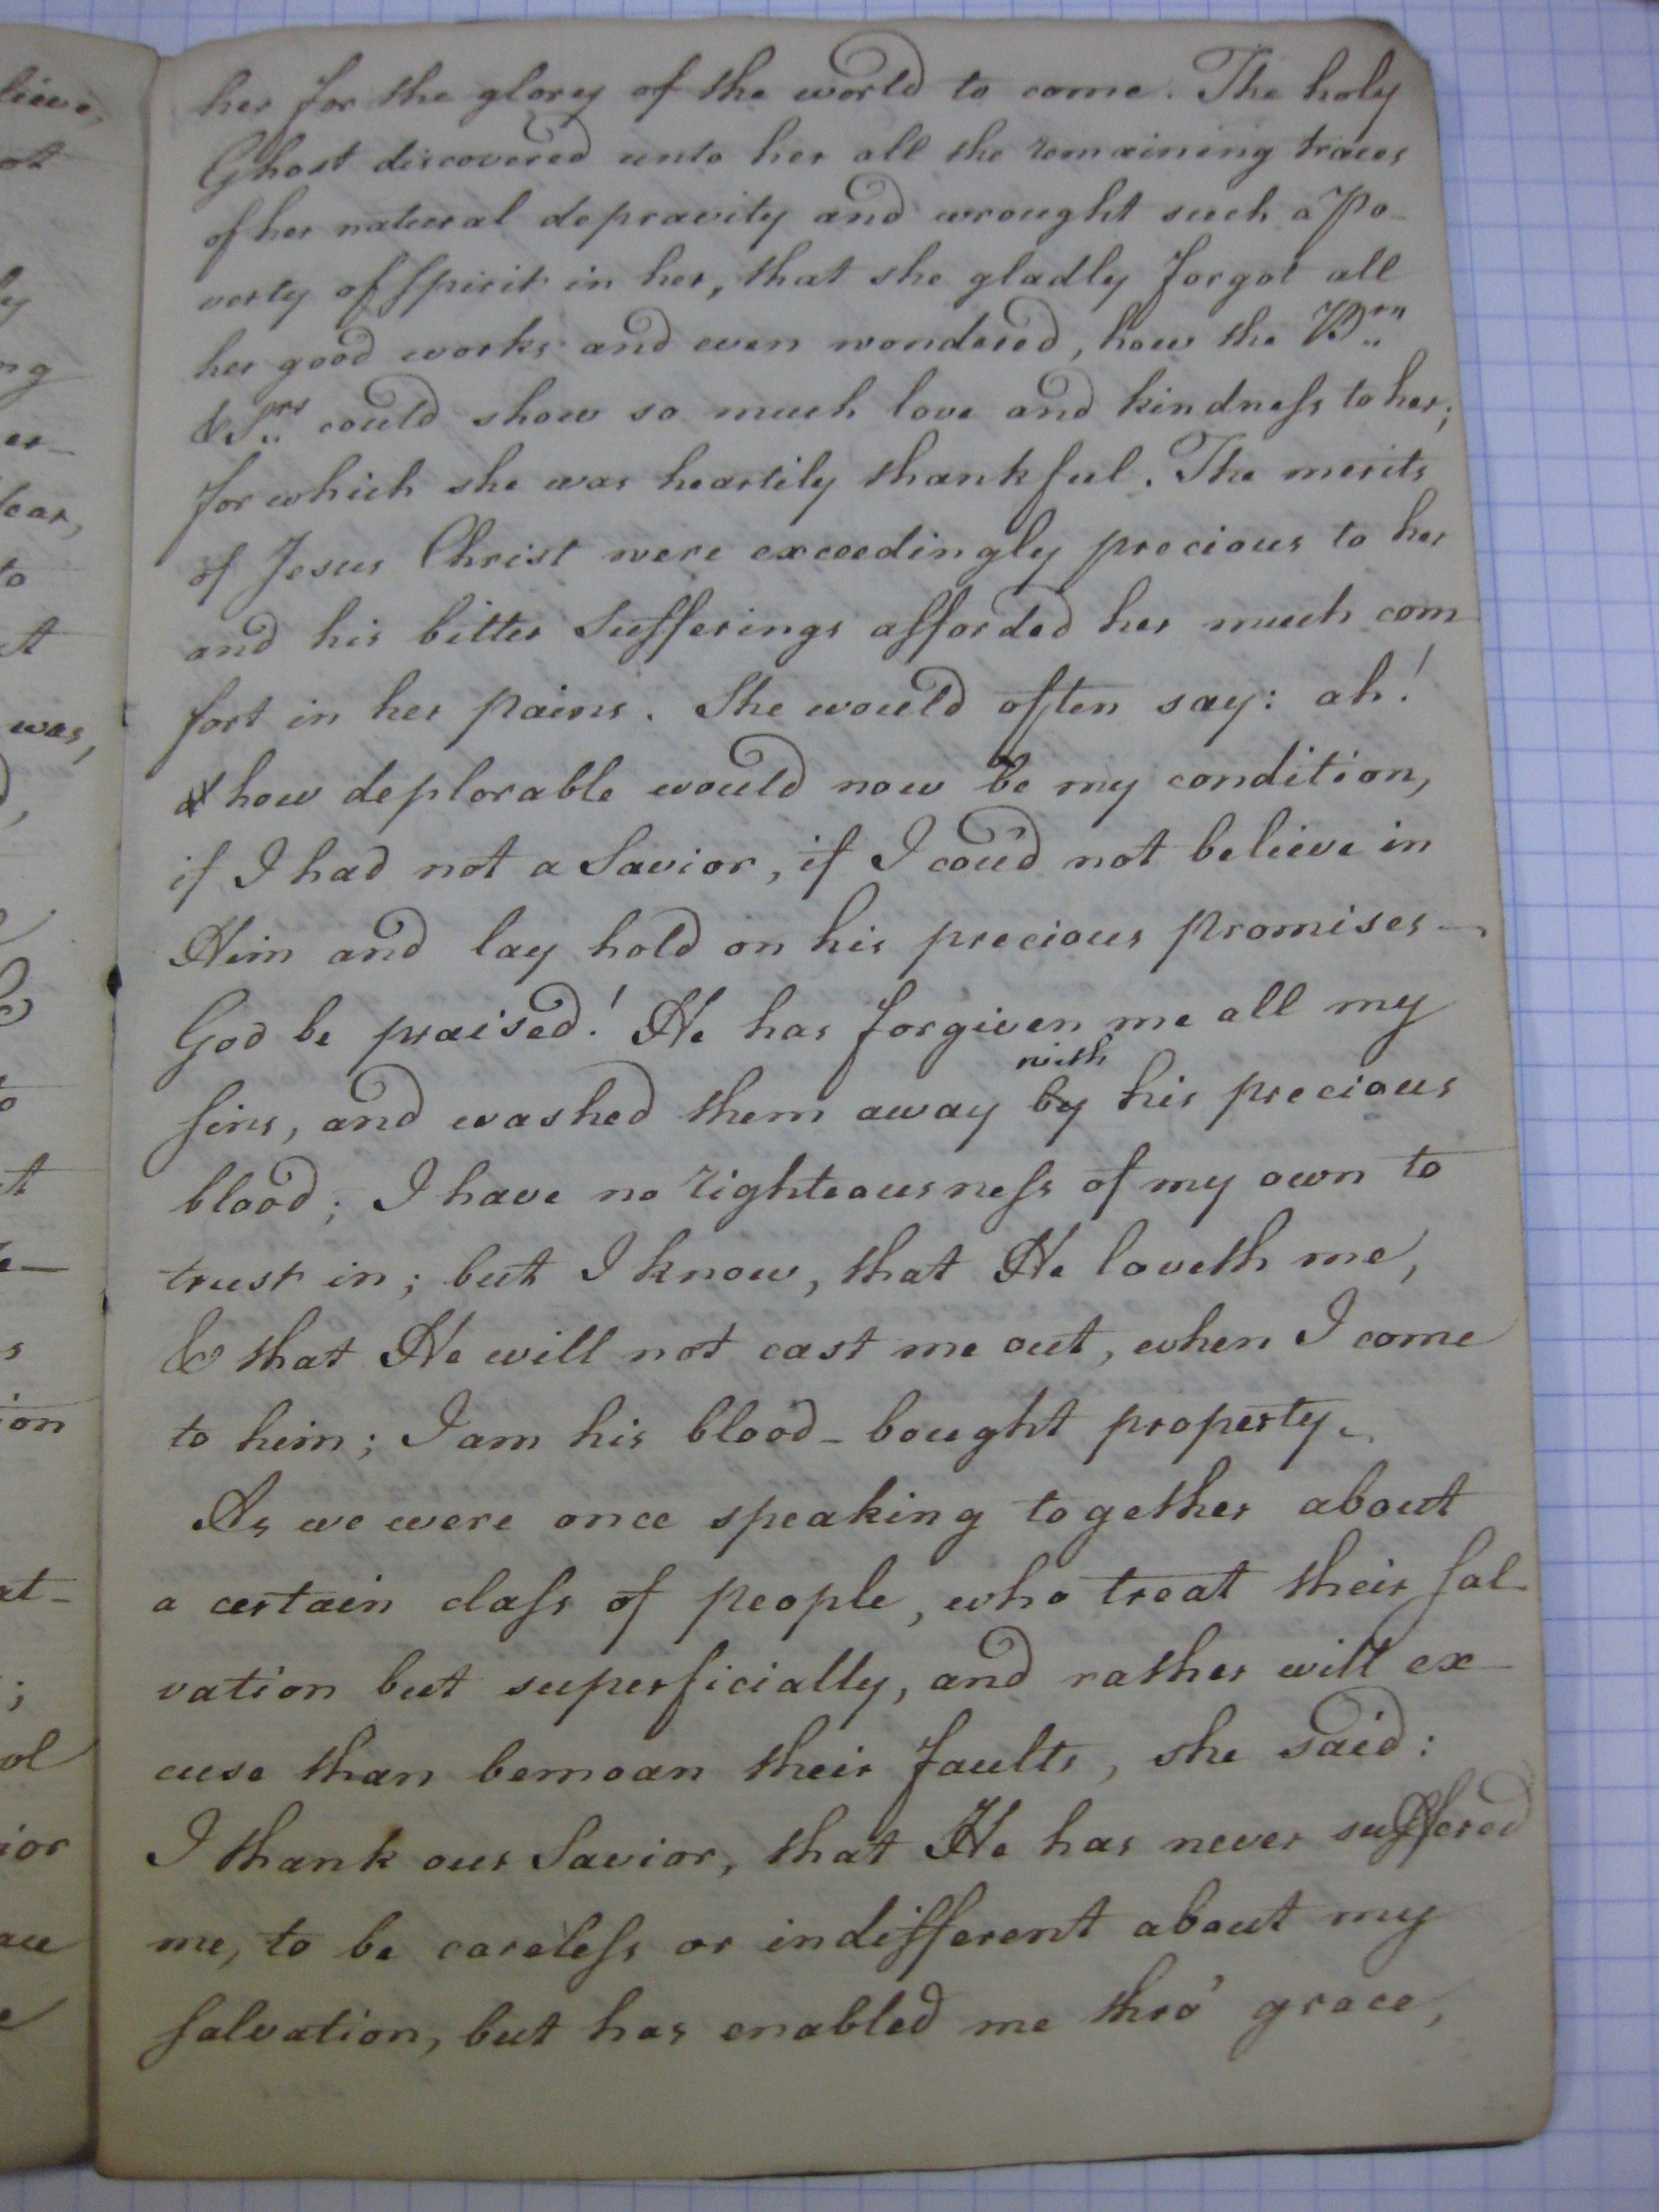 her for the glory of the world to come. The holy
Ghost discovered unto her all the remaining traces
of her natural depravity and wrought such a Po-
verty of Spirit in her, that she gladly forgot all
her good works and even wondered, how the Brn
& Srs could show so much love and kindneſs to her;
for which she was heartily thankful. The merits
of Jesus Christ were exceedingly precious to her
and his bitter Sufferings afforded her much com-
fort in her pains. She would often say: ah!
how deplorable would now be my condition,
if I had not a Savior, if I coud not believe in
Him and lay hold on his precious promises —
God be praised! He has forgiven me all my
with
Sins, and washed them away by his precious
blood; I have no righteousneſs of my own to
trust in; but I know, that He loveth me,
& that He will not cast me out, when I come
to him; I am his blood-bought property.
As we were once speaking together about
a certain claſs of people, who treat their Sal-
vation but superficially, and rather will ex-
cuse than bemoan their faults, she said:
I thank our Savior, that He has never suffered
me, to be careleſs or indifferent about my
Salvation, but has enabled me thro' grace,